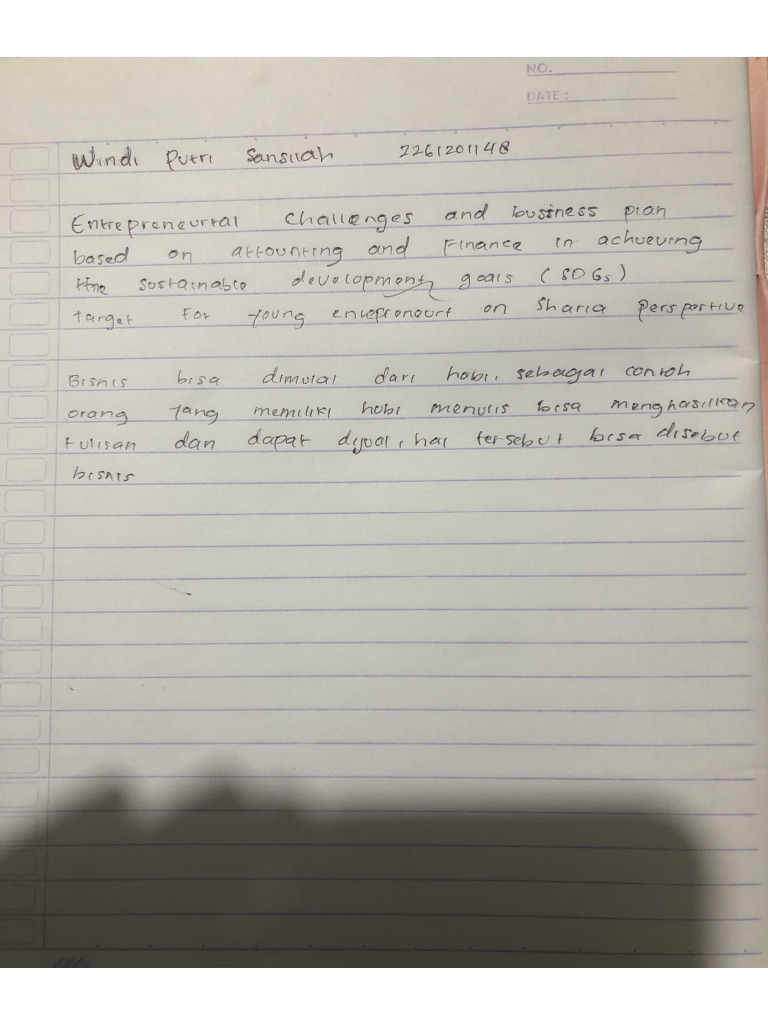 NO.
DATE:
Windi Putri Sansilah 2261201148
Entrepreneurial challenges and business plan
based on accounting and Finance in achueving
the sustainable development goals (SDGs)
target For young entrepreneurs on Sharia Persportive
Bisnis bisa dimulai dari hobi, sebagai contoh
orang yang memiliki hobi menulis bisa menghasilkan
tulisan dan dapat dijual, hal tersebut bisa disebut
bisnis